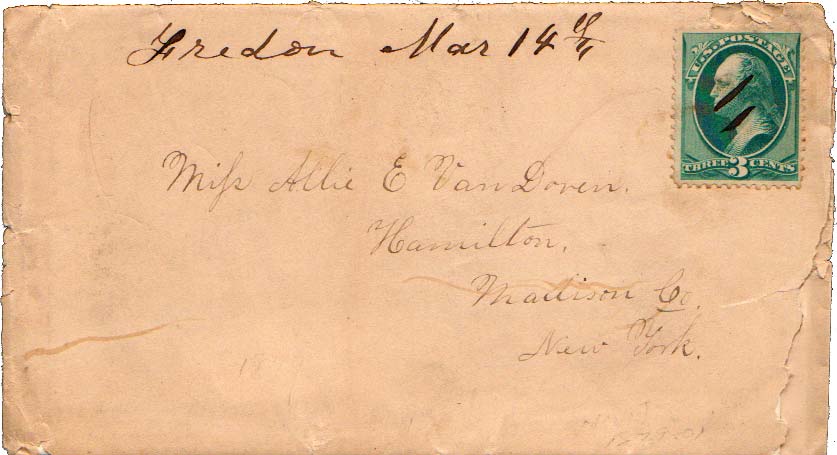 Fredon Mar 14th
U.S. POSTAGE
THREE 3 CENTS
Miss Allie E Van Doren.
Hamilton,
Madison Co.
New York.
18